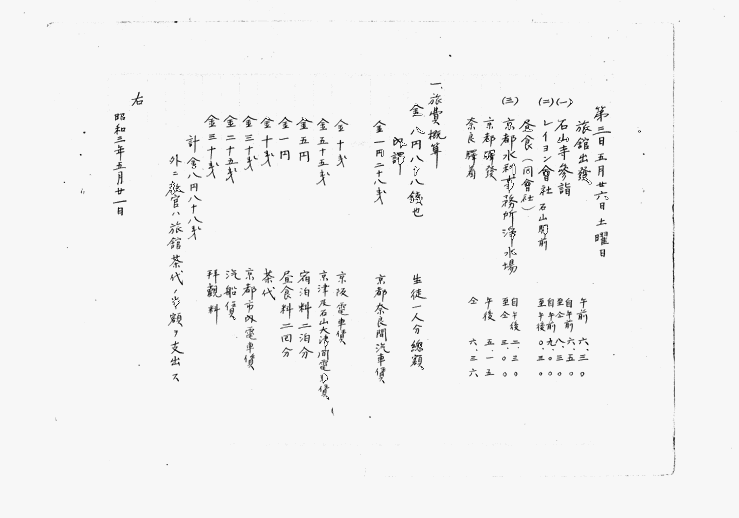 第三日 五月廿六日 土曜日
旅館出発 午前 六、三〇
(一) 石山寺参詣 自午前 六、五〇 至仝 八、三〇
(二) レイヨン會社 石山関前 自午前 九、〇〇 至午後 〇、三〇
昼食(同會社)
(三) 京都水利事務所浄水場 自午後 二、三〇 至仝 三、〇〇
京都驛發 午後 五、一五
奈良驛着 仝 六、三六
一、旅費概算
金八円八十八銭也 生徒一人分總額
内譯
金一円二十八戋 京都奈良間汽車賃
金十戋 京阪電車賃
金五十五戋 京津及石山大津間電車賃
金五円 宿泊料二泊分
金一円 昼食料二回分
金十戋 茶代
金三十戋 京都市内電車賃
金二十五戋 汽船賃
金三十戋 拝觀料
計金八円八十八戋
外ニ教官ハ旅館茶代ノ半額ヲ支出ス
右
昭和三年五月廿一日